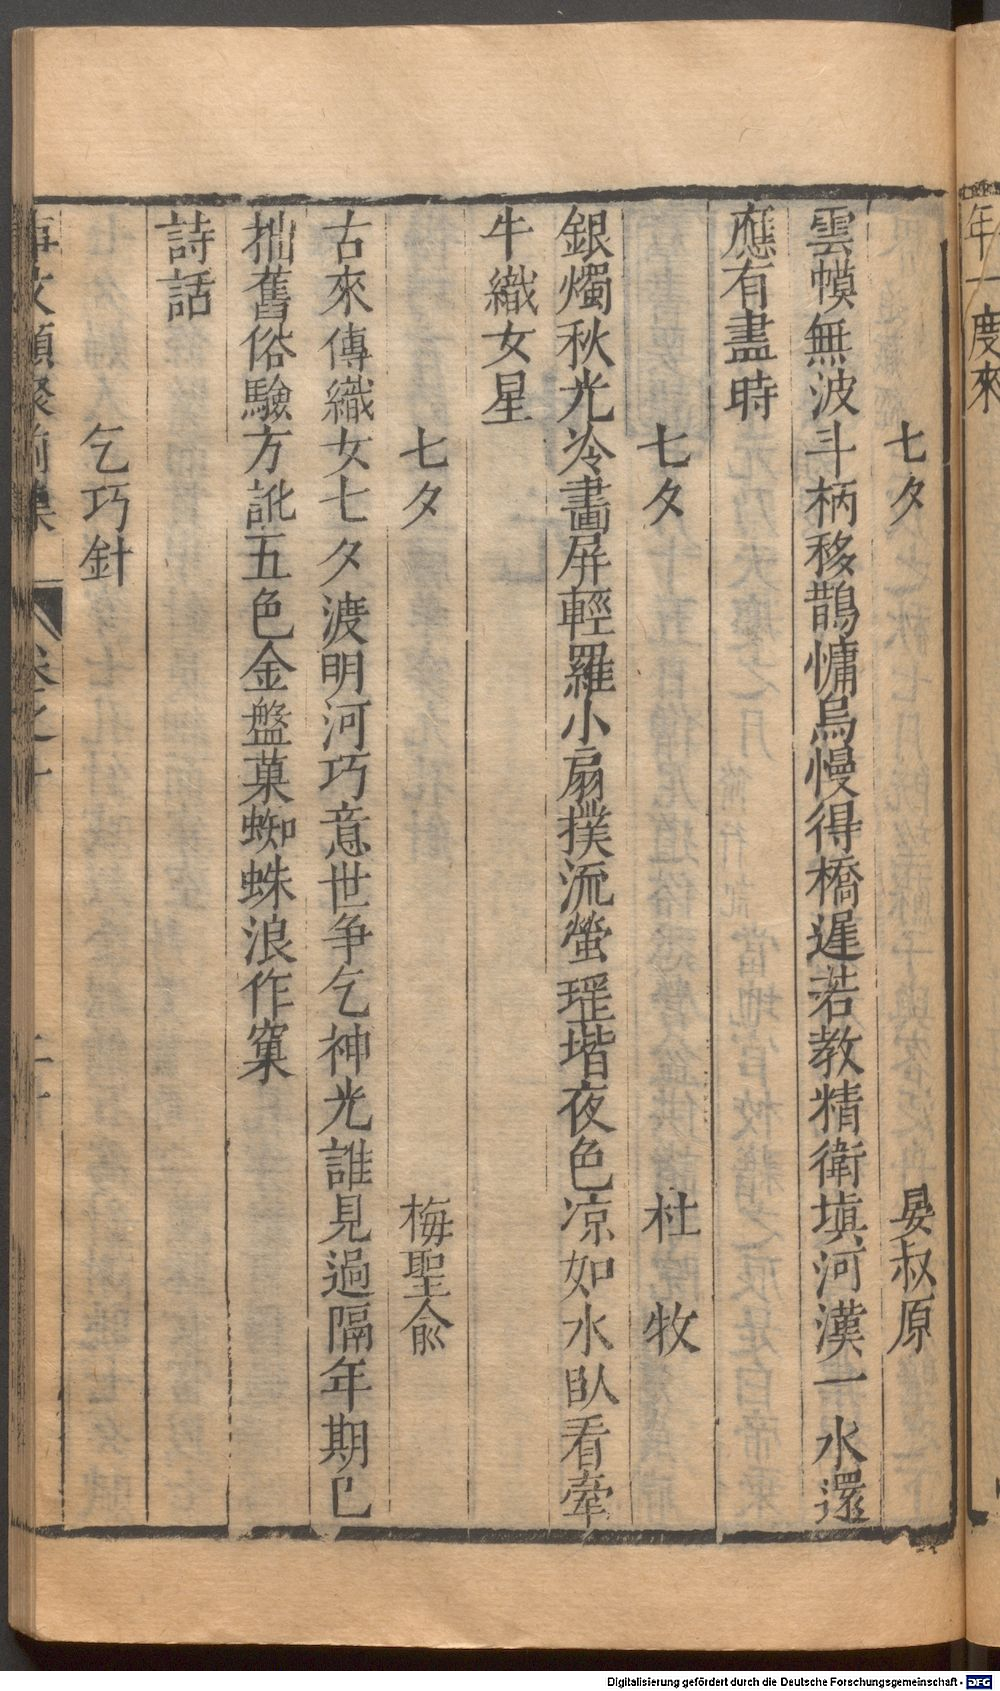 年一度來
七夕 晏叔原
雲幙無波斗柄移鵲慵烏慢得橋遲若教精衛塡河漢一水還
應有盡時
七夕 杜牧
銀燭秋光冷畵屏輕羅小扇撲流螢瑆堦夜色凉如水臥看牽
牛織女星
七夕 梅聖俞
古來傳織女七夕渡明河巧意世争乞神光誰見過隔年期已
拙舊俗驗方訛五色金盤菓蜘蛛浪作窠
詩話
乞巧針
事文類聚前集 卷之十 二十
Digitalisierung gefördert durch die Deutsche Forschungsgemeinschaft - DFG